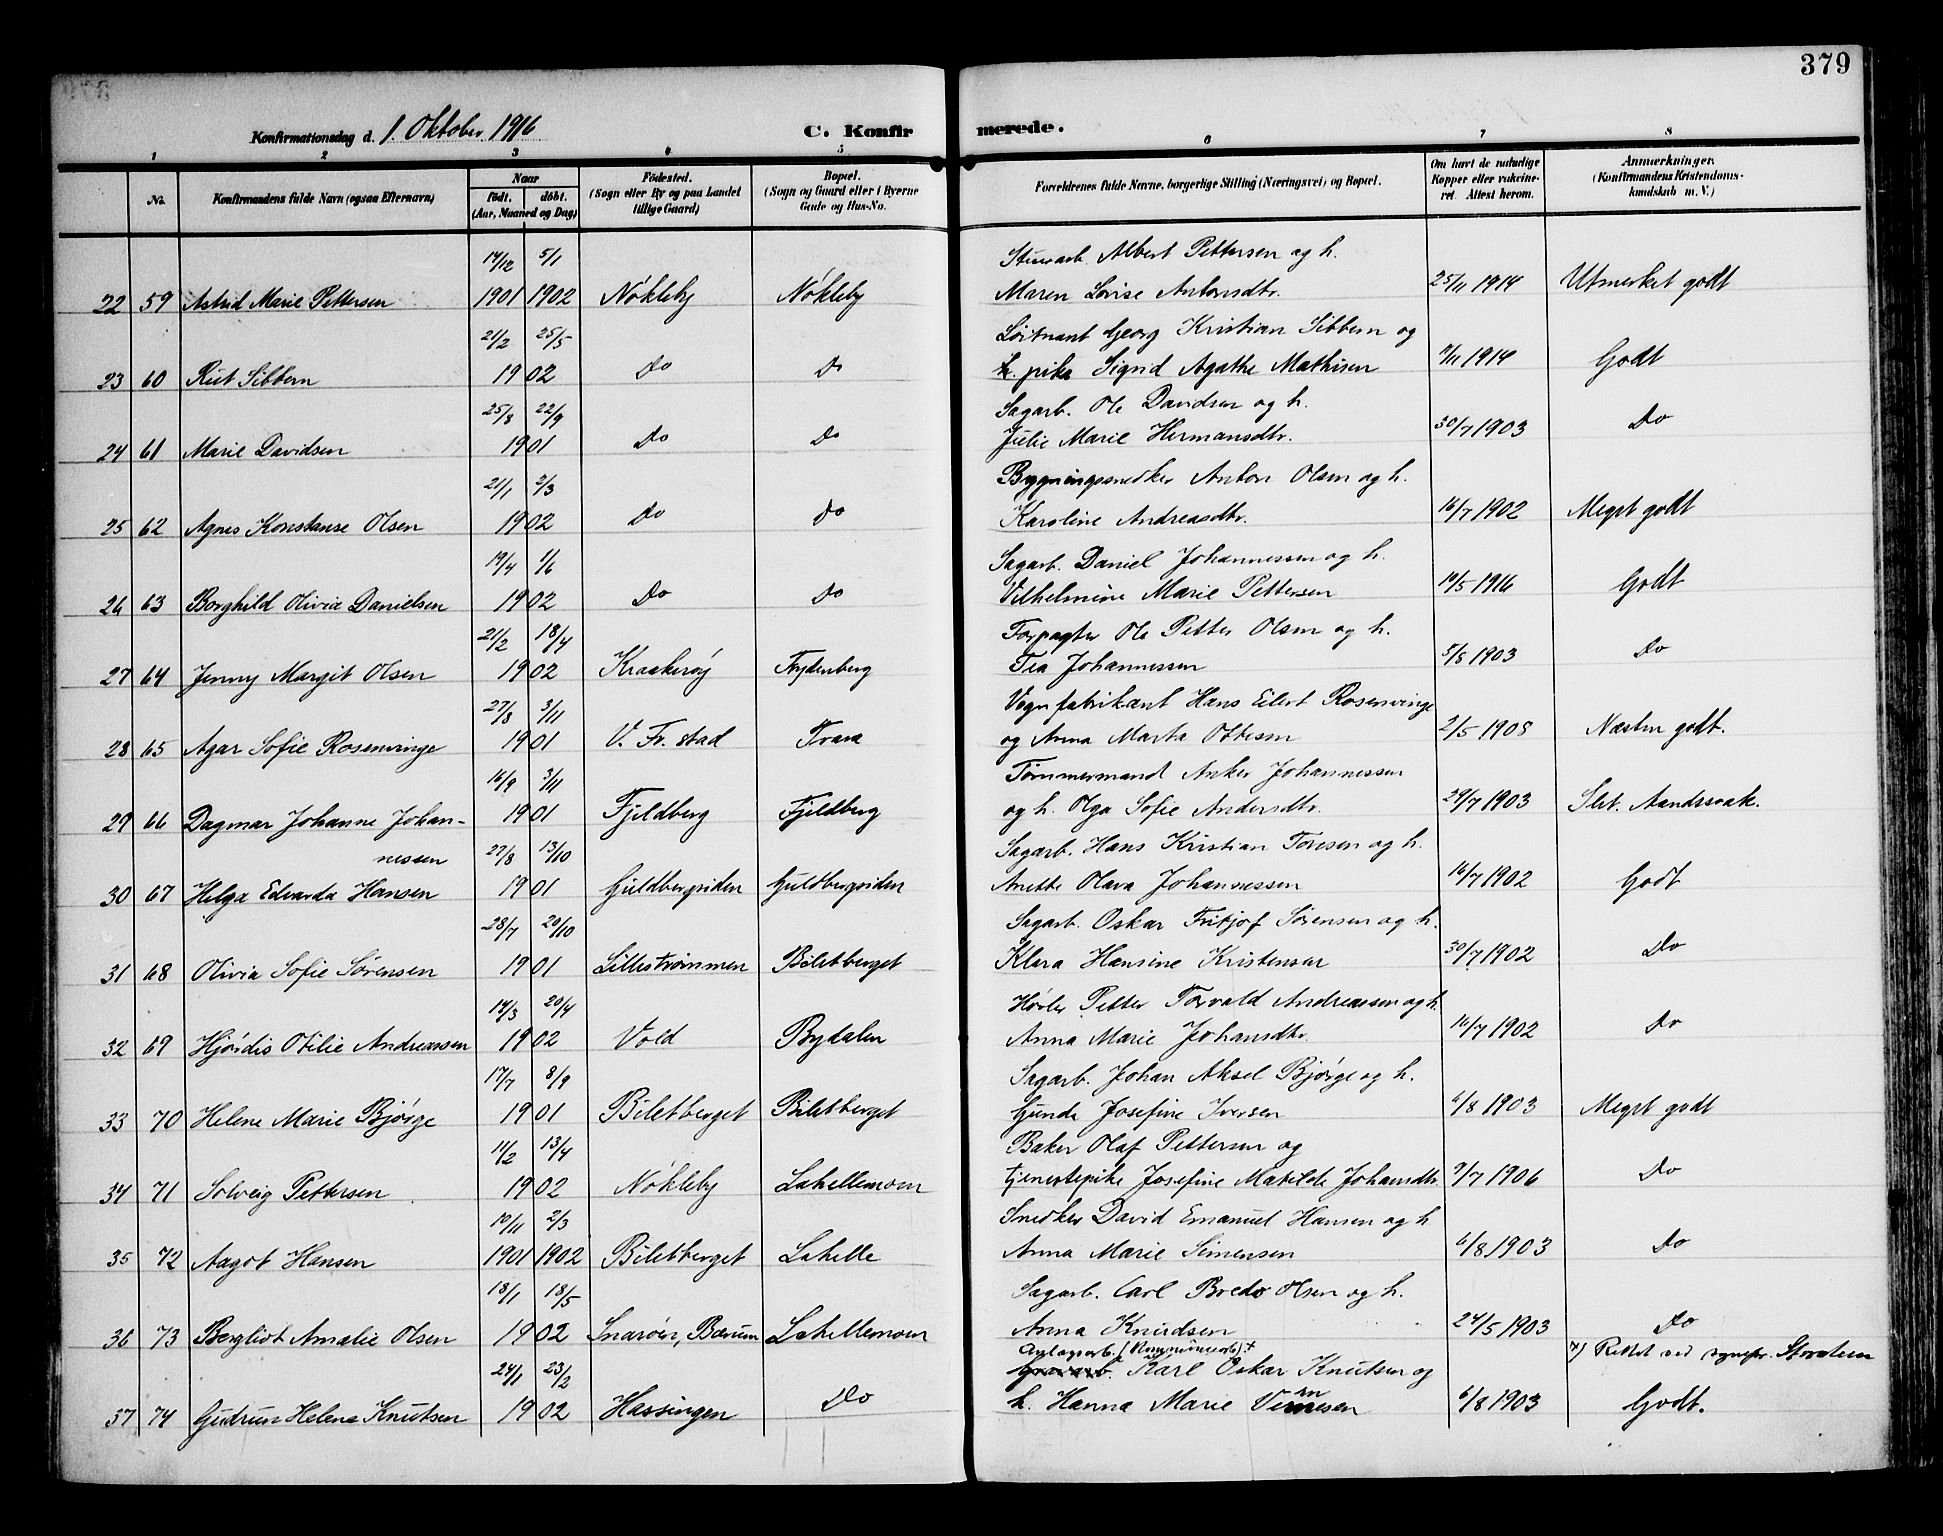 379
Konfirmationsdag d. 1. Oktober 1916 C. Konfirmerede.
1 2 3 4 5 6 7 8
No. Konfirmandens fulde Navn (ogsaa Efternavn) Naar født. døbt. (Aar, Maaned og Dag) Fødested. (Sogn eller By og paa Landet tillige Gaard) Bopæl. (Sogn og Gaard eller i Byerne Gade og Hus-No. Forældrenes fulde Navne, borgerlige Stilling (Næringsvei) og Bopæl. Om havt de naturlige Kopper eller vakcineret. Attest herom. Anmærkninger. (Konfirmandens Kristendomskundskab m. V.)
14/12 5/1 Albert Pettersen og h.
22 59 Astrid Marie Pettersen 1901 1902 Nökleby Nökleby Maren Lovise Antonsdtr. 25/11 1914 Utmerket godt
21/2 25/5 Løitnant Georg Kristian Sibbern og
23 60 Rut Sibbern 1902 Do Do pike Sigrid Agathe Mathisen 7/11 1914 Godt
25/8 22/9 Sagarb. Ole Davidsen og h.
24 61 Marie Davidsen 1901 Do Do Julie Marie Hermansdtr. 30/7 1903 Do
21/1 2/3 Bygningssnedker Anton Olsen og h.
25 62 Agnes Konstanse Olsen 1902 Do Do Karoline Andreasdtr. 16/7 1902 Meget godt
19/4 1/6 Sagarb. Daniel Johannessen og h.
26 63 Borghild Olivia Danielsen 1902 Do Do Vilhelmine Marie Pettersen 19/5 1916 Godt
21/2 18/4 Forpagter Ole Petter Olsen og h.
27 64 Jenny Margit Olsen 1902 Kraakerøy Frydenberg Tea Johannessen 5/8 1903 Do
27/8 3/11 Vognfabrikant Hans Eilert Rosenvinge
28 65 Agar Sofie Rosenvinge 1901 V. Fr.stad Trara og Anna Marta Ottesen 2/5 1908 Næsten godt.
16/9 3/11 Tømmermand Anker Johannessen
29 66 Dagmar Johanne Johan- 1901 Fjeldberg Fjeldberg og h. Olga Sofie Andersdtr. 29/7 1903 Slet. Aandssvak.
nessen 27/8 13/10 Sagarb. Hans Kristian Toresen og h.
30 67 Helga Edvarda Hansen 1901 Guldbergsiden Guldbergsiden Anette Olava Johannessen 16/7 1902 Godt
28/7 20/10 Sagarb. Oskar Fritjof Sørensen og h.
31 68 Olivia Sofie Sørensen 1901 Lillestrømmen Biletberget Klara Hansine Kristensen 30/7 1902 Do
14/3 20/4 Høvler Petter Torvald Andreassen og h.
32 69 Hjørdis Otilie Andreassen 1902 Vold Bydalen Anna Marie Johansdtr. 16/7 1902 Do
17/7 8/9 Sagarb. Johan Aksel Bjørge og h.
33 70 Helene Marie Bjørge 1901 Biletberget Biletberget Gunda Josefine Iversen 6/8 1903 Meget godt
11/2 13/4 Baker Olaf Pettersen og
34 71 Solveig Pettersen 1902 Nökleby Lahellemoen tjenestepike Josefine Matilde Johansdtr. 9/7 1906 Do
10/11 2/3 Snedker David Emanuel Hansen og h
35 72 Aagot Hansen 1901 1902 Biletberget Lahelle Anna Marie Simensen 6/8 1903 Do
18/1 18/5 Sagarb. Carl Bredo Olsen og h.
36 73 Bergliot Amalie Olsen 1902 Snarøen, Bærum Lahellemoen Anna Knudsen 24/5 1903 Do
Anlægsarb. (Kommunearb) + +) Rettet ved sognepr. Storsteen
24/1 23/2 Karl Oskar Knutsen og
37 74 Gudrun Helene Knutsen 1902 Hassingen Do h. Hanna Marie 6/8 1903 Godt.